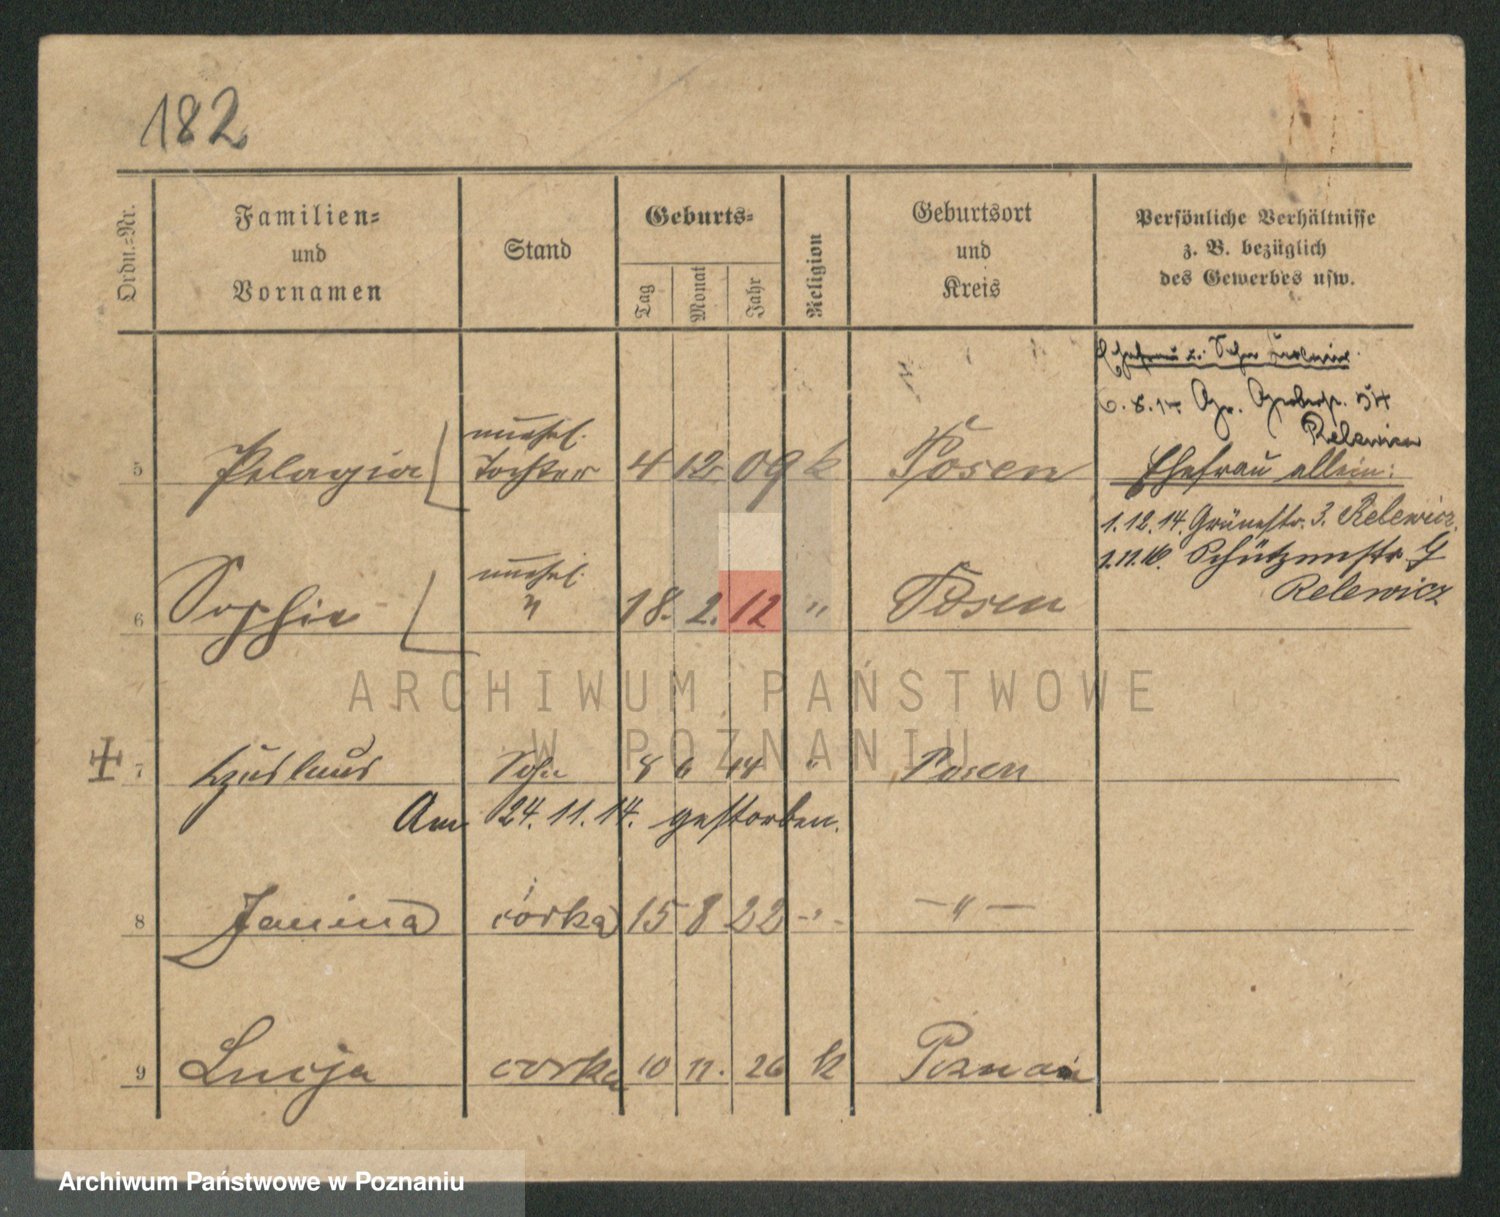 182
Ordn.=Nr.
Familien=
und
Vornamen
Stand
Geburts=
Tag
Monat
Jahr
Religion
Geburtsort
und
Kreis
Persönliche Verhältnisse
z. B. bezüglich
des Gewerbes usw.
Ehefrau u. Sohn
6.8.14 Gr. 54
Relewicz
unehel.
5 Pelagia Tochter 4 12 09 k Posen
Ehefrau allein:
1.12.14. Grünestr. 3. Relewicz.
1.11.16. Schützenstr.
Relewicz
unehel.
6 Sophie " 18. 2. 12 " Posen
7 Sohn 8 6 14 " Posen
Am 24.11.14. gestorben.
8 Janina córka 15 8 22 -"- -"-
9 Lucja corka 10 11. 26 k Poznań
ARCHIWUM PAŃSTWOWE
W POZNANIU
Archiwum Państwowe w Poznaniu